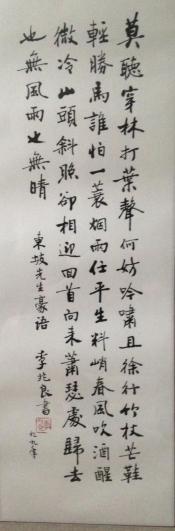 莫聽穿林打葉聲何妨吟嘯且徐行竹杖芒鞋
輕勝馬誰怕一蓑烟雨任平生料峭春風吹酒醒
微冷山頭斜照卻相迎回首向來蕭瑟處歸去
也無風雨也無晴
東坡先生豪語
李兆良書